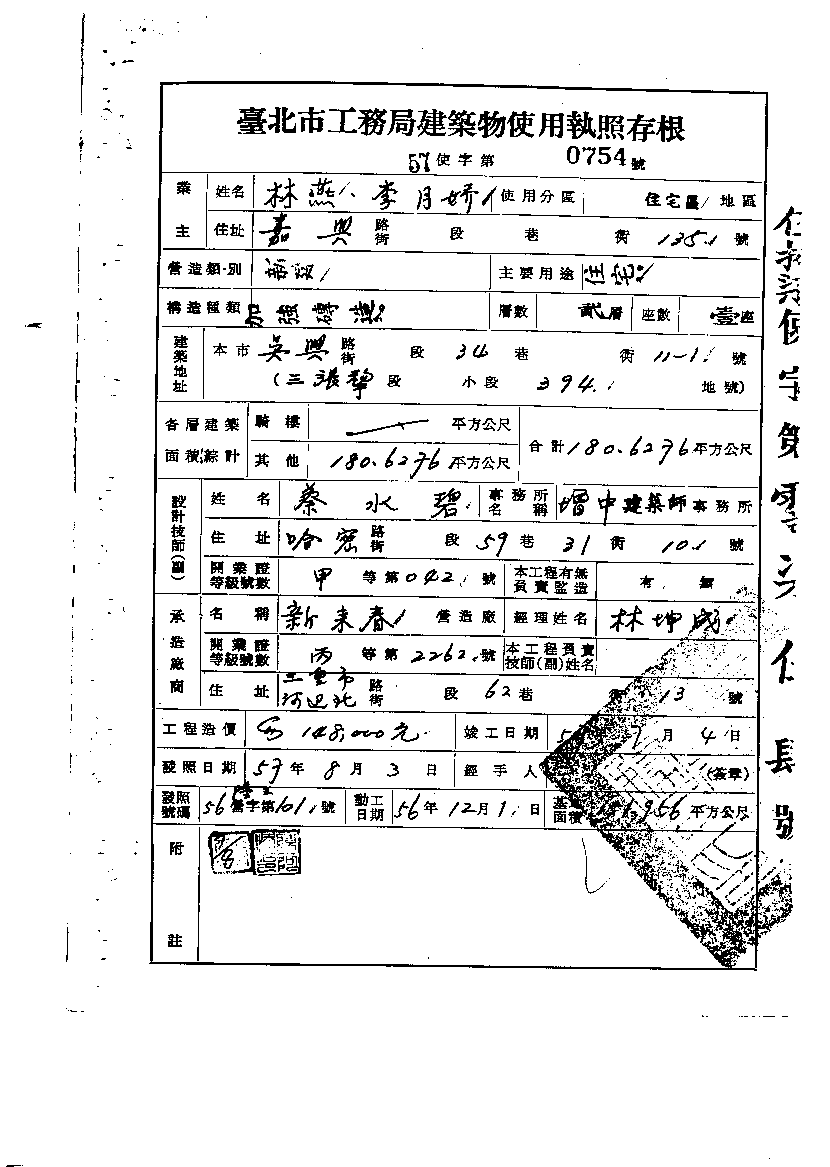 臺北市工務局建築物使用執照存根
57使字第 0754 號
業主 姓名 林燕、李月嬌 使用分區 住宅區 地區
住址 嘉興 路街 段 巷 街 135 號
營造類別 新築 主要用途 住宅
構造種類 加強磚造 層數 貳層 座數 壹座
建築地址 本市 吳興 路街 段 34 巷 街 11-1 號
(三張犂段 小段 394 地號)
各層建築面積綜計 騎樓 平方公尺 合計180.6276平方公尺
其他 180.6276 平方公尺
設計技師(副) 姓名 蔡水碧 事務所名稱 增中建築師事務所
住址 哈密 路街 段 59 巷 31 街 10 號
開業證等級號數 甲 等第 042 號 本工程有無負責監造 有 無
承造廠商 名稱 新來春 營造廠 經理姓名 林坤成
開業證等級號數 丙 等第 2262 號 本工程負責技師(副)姓名
住址 三重市河邊北 路街 段 62 巷 街 13 號
工程造價 148,000元 竣工日期 7 月 4 日
發照日期 57 年 8 月 3 日 經手人 (簽章)
發照號碼 56 營字第101號 動工日期 56年 12月 1 日 基地面積 956 平方公尺
附註